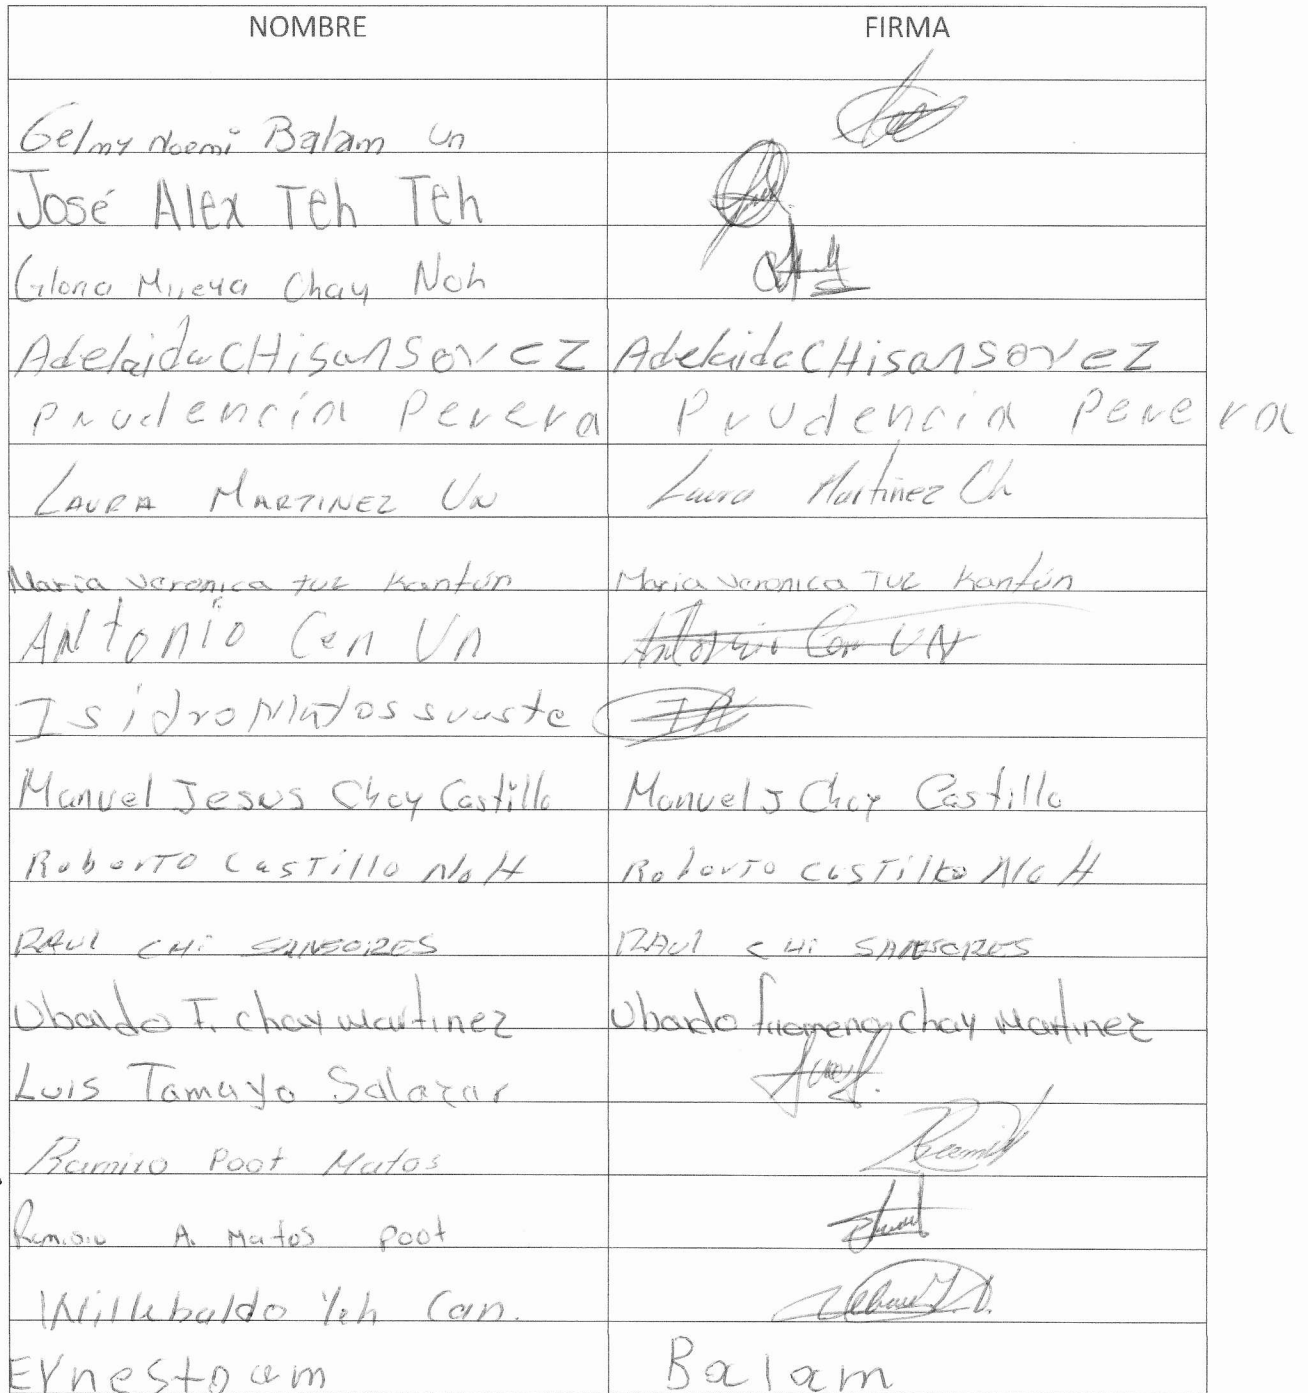 NOMBRE FIRMA
Gelmy Noemi Balam Un
José Alex Teh Teh
Gloria Mireya Chay Noh
Adelaida CHisansovez Adelaida CHisansovez
Prudencia Perera Prudencia Perera
LAURA MARTINEZ UN Laura Martinez Ch
Maria Veronica Tuz Kantún Maria Veronica TUZ Kantún
ANtonio Cen Un Antonio Cen UN
Isidro Matos suaste
Manuel Jesus Chay Castillo Manuel J Chay Castillo
Roberto CasTillo NoH Roberto casTillo NoH
RAUl CHi SANSORES RAUl CHi SANSORES
Ubaldo F. chay martinez Ubaldo chay martinez
Luis Tamayo Salazar
Ramiro Poot Matos
A. Matos Poot
Willebaldo Yeh Can.
Ernesto am Balam